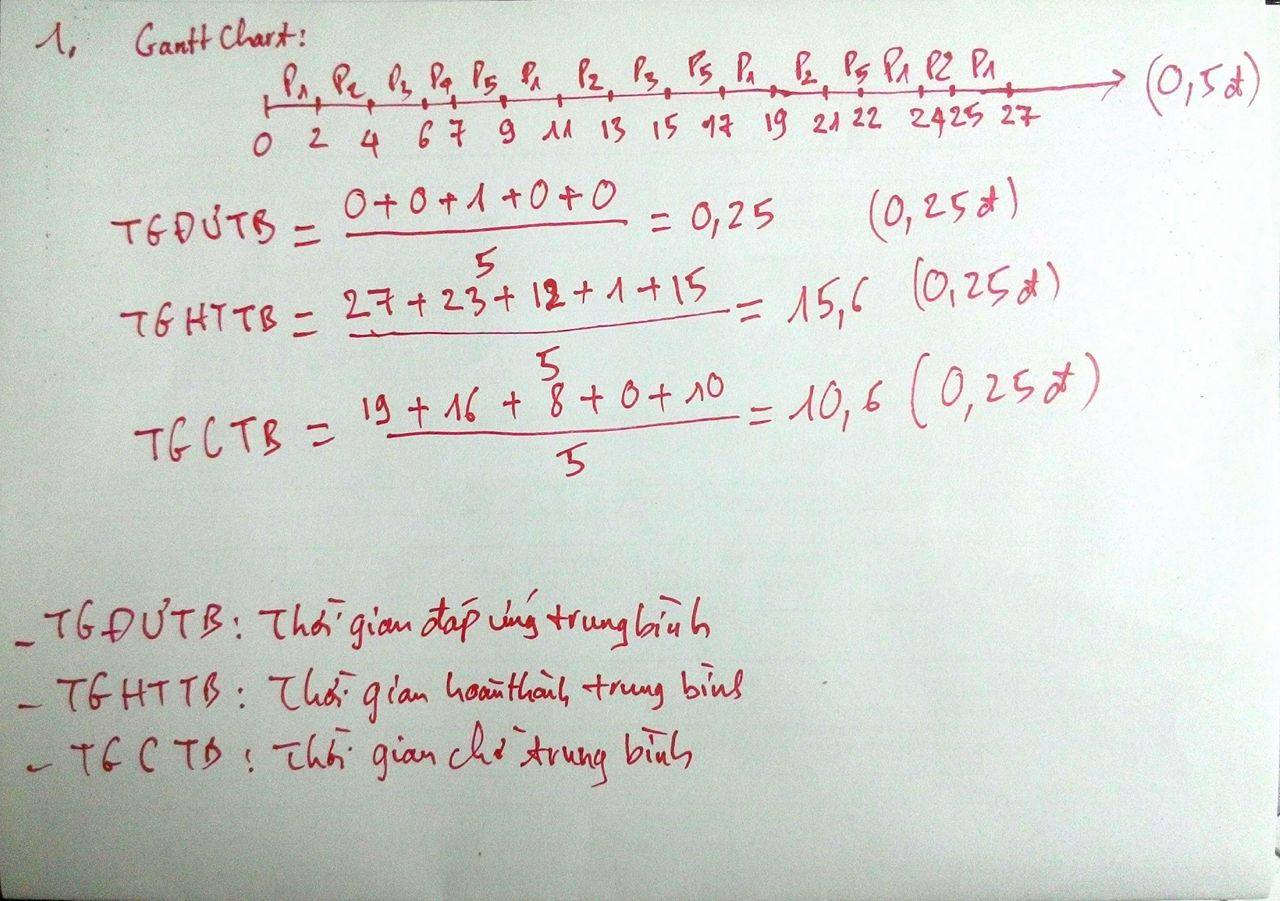 1. Gantt Chart:
P1 P2 P3 P4 P5 P1 P2 P3 P5 P1 P2 P5 P1 P2 P1
(0,5đ)
0 2 4 6 7 9 11 13 15 17 19 21 22 24 25 27
TGĐƯTB = (0+0+1+0+0)/5 = 0,25 (0,25đ)
TGHTTB = (27+23+12+1+15)/5 = 15,6 (0,25đ)
TGCTB = (19+16+8+0+10)/5 = 10,6 (0,25đ)
- TGĐƯTB: Thời gian đáp ứng trung bình
- TGHTTB: Thời gian hoàn thành trung bình
- TGCTB: Thời gian chờ trung bình